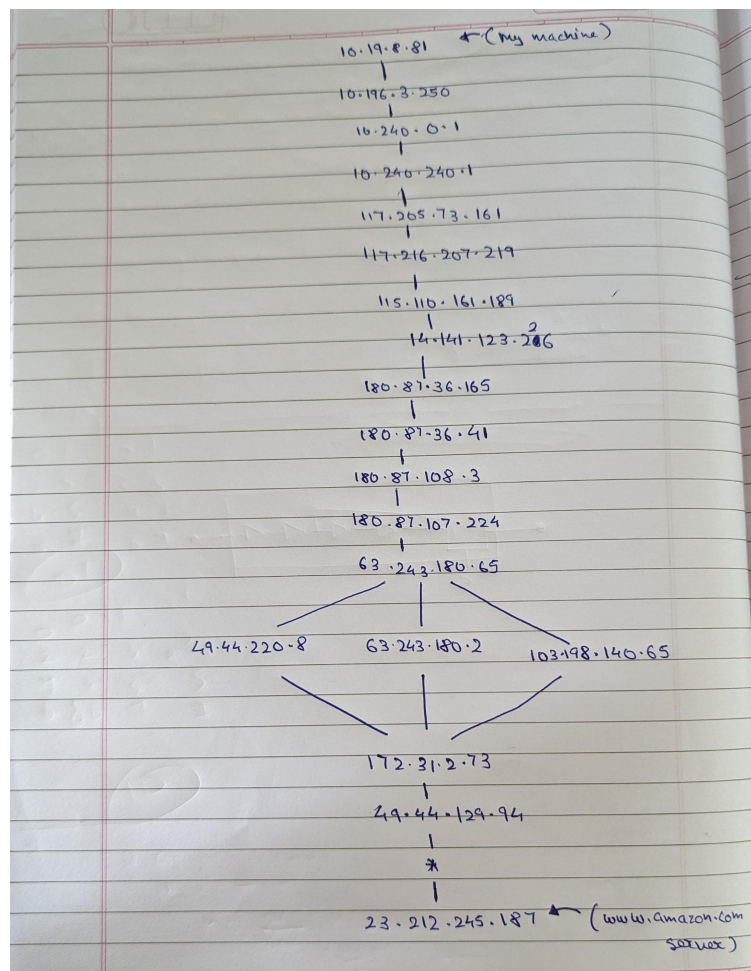 10.19.8.81 ← (My machine)
10.196.3.250
10.240.0.1
10.240.240.1
117.205.73.161
117.216.207.219
115.110.161.189
14.141.123.226
180.87.36.165
180.87.36.41
180.87.108.3
180.87.107.224
63.243.180.65
49.44.220.8 63.243.180.2 103.198.140.65
172.31.2.73
49.44.129.94
*
23.212.245.187 ← (www.amazon.com
server)